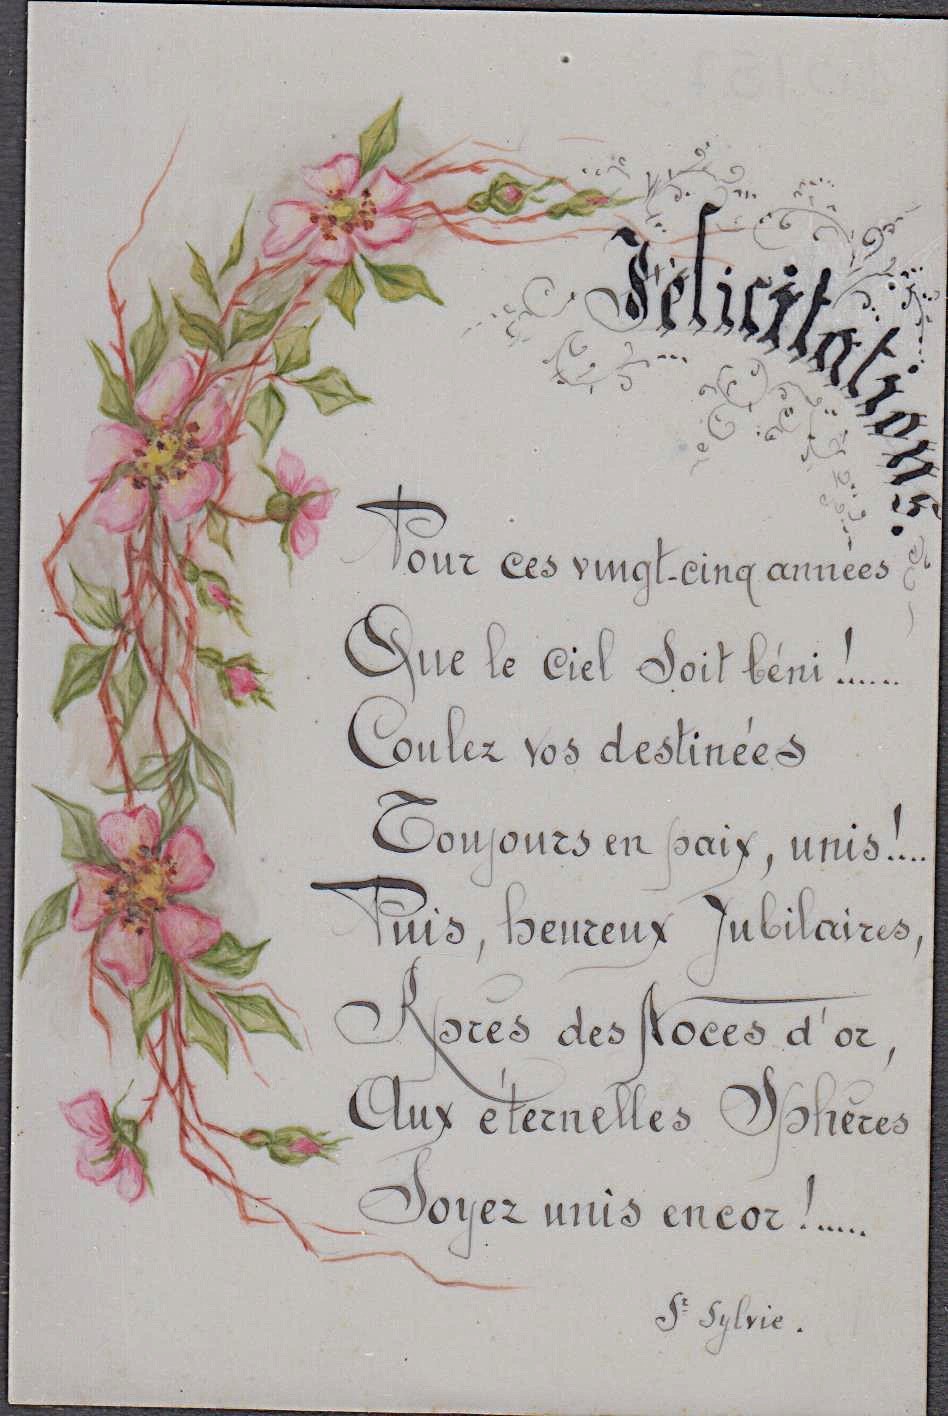 Félicitations.
Pour ces vingt-cinq années
Que le ciel Soit béni !......
Coulez vos destinées
Toujours en paix, unis !....
Puis, heureux Jubilaires,
Après des Noces d'or,
Aux éternelles Sphères
Soyez unis encor !.....
Sr Sylvie.